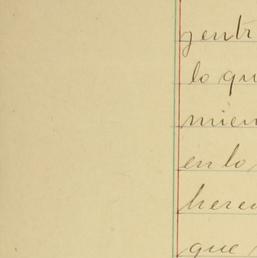 y entr
lo qu
mien
en lo
here
que